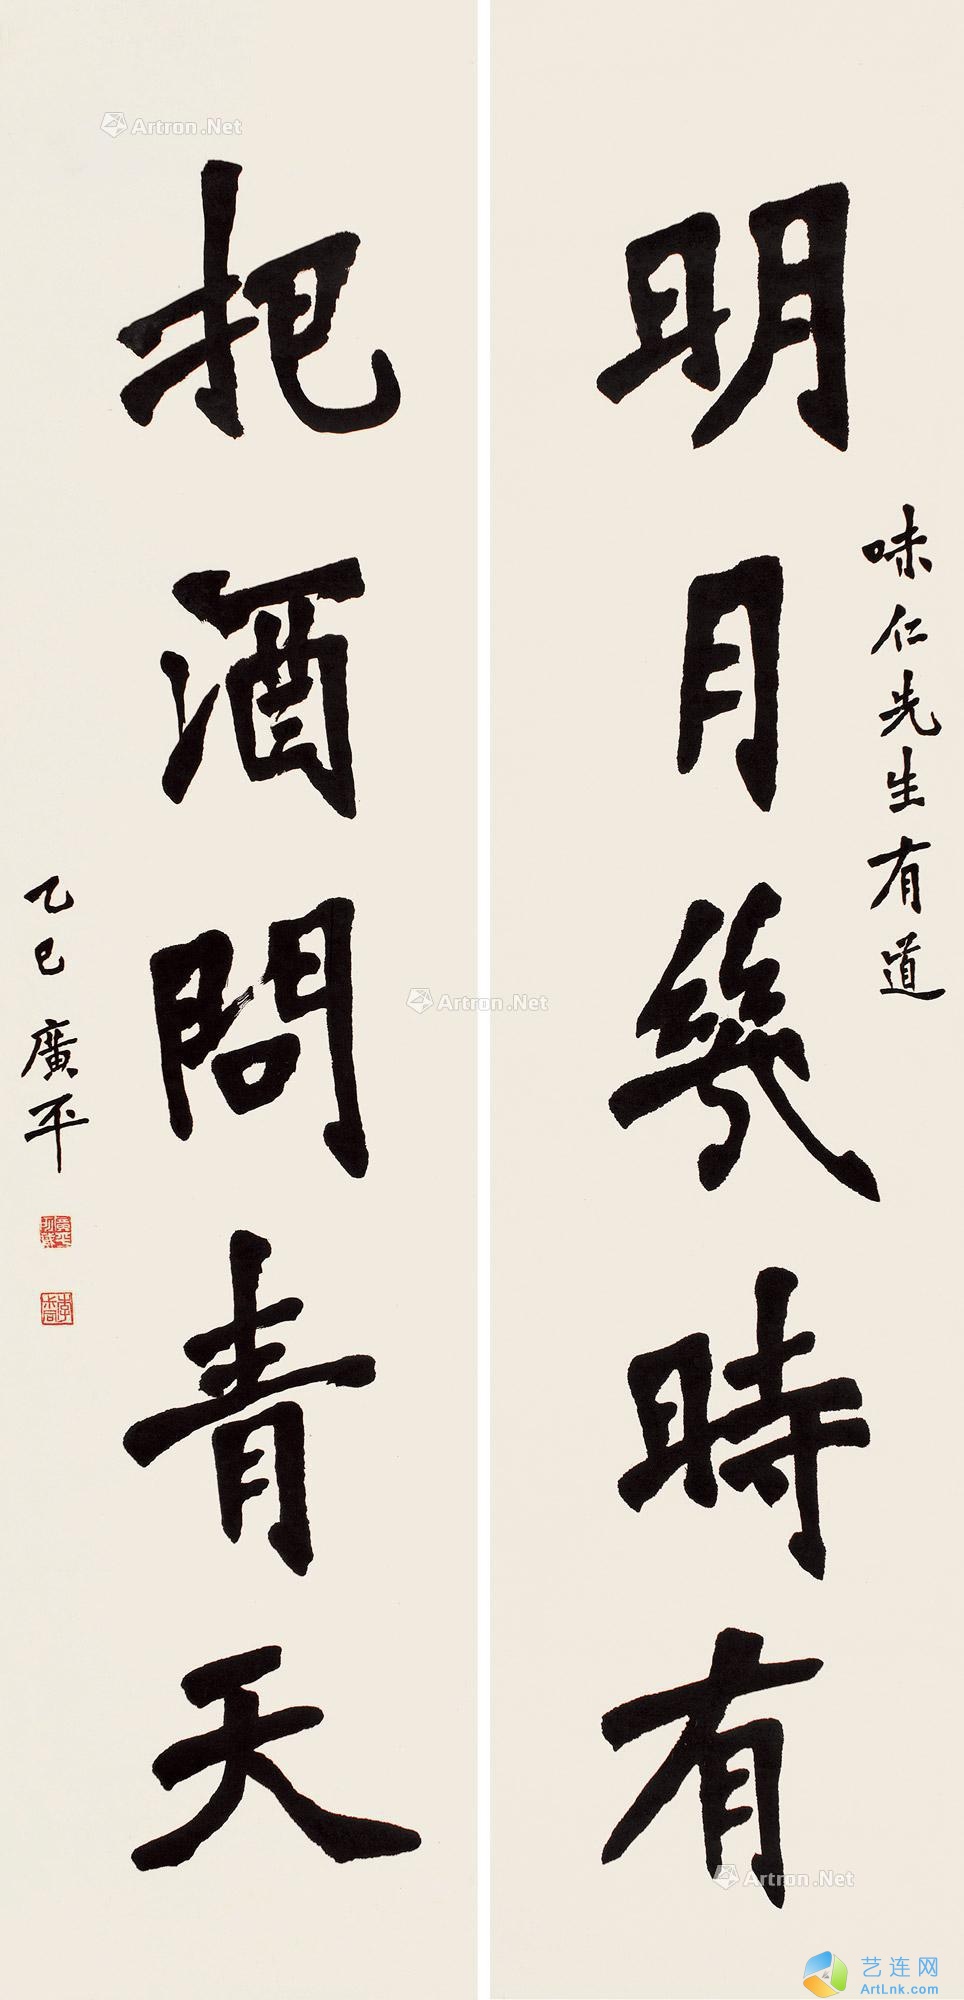 明月幾時有
味仁先生有道
把酒問青天
乙巳 廣平
Artron.Net
Artron.Net
Artron.Net
艺连网
ArtLnk.com